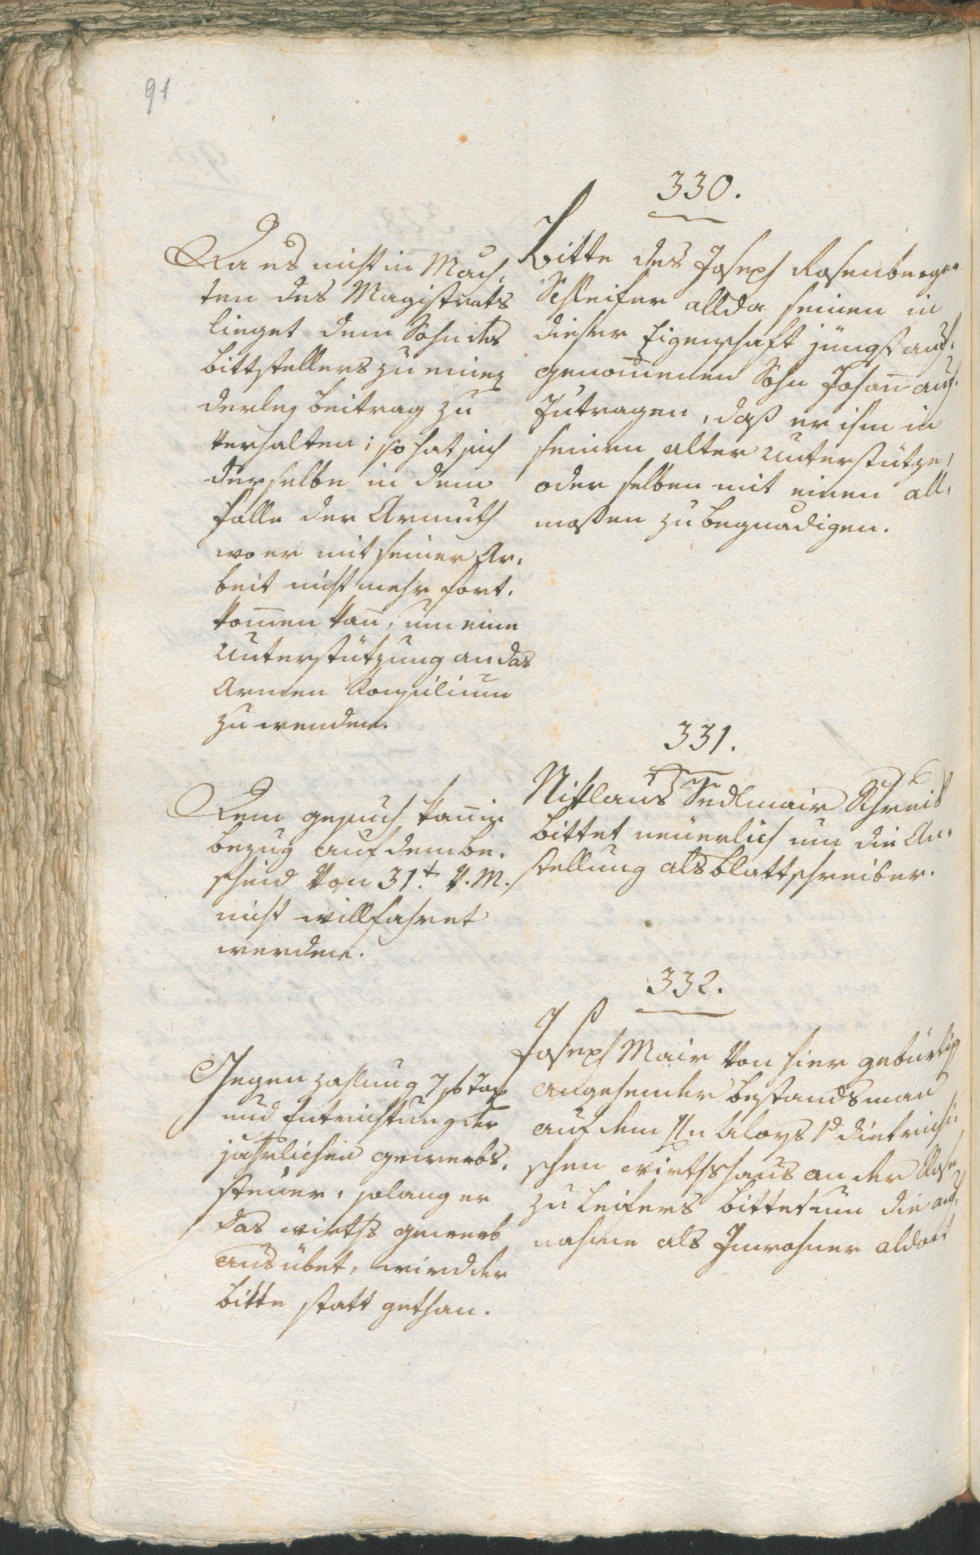 91
330.
Da es nicht in Mäch,
ten des Magistrats
lieget dem Sohn des
bittstellers zu einig
derley beitrag zu
verhalten; so hat sich
derselbe in dem
falle der Armuth
wo er mit seiner Ar,
beit nicht mehr fort,
kom̄en kan̄, um eine
Unterstützung an das
Armen Konsilium
zu wenden.
Bitte des Joseph Rosenberger
Schleifer allda seinen in
dieser Eigenschaft jüngst auf,
genom̄enen Sohn Johan̄ auf,
zutragen, daß er ihm in
seinen alter Unterstütze,
oder selben mit einen all,
mosen zu begnadigen.
331.
Dem gesuch kan̄ in
bezug auf den be,
scheid von 31.t v. M.
nicht willfahret
werden.
Niklaus Sedlmair Schreib
bittet neuerlich um die An,
stellung als blattschreiber.
332.
Gegen zahlung Taxe
und Entrichtung der
jährlichen gewerbs,
steuer, solang er
das wirths gewerb
ausübet, wird der
bitte statt gethan.
Joseph Mair von hier gebürtig
angehender bestandsman̄
auf dem Aloys Dietrich
schen wirthshaus an der
zu Leifers bittet um die auf,
nahme als Inwohner aldort